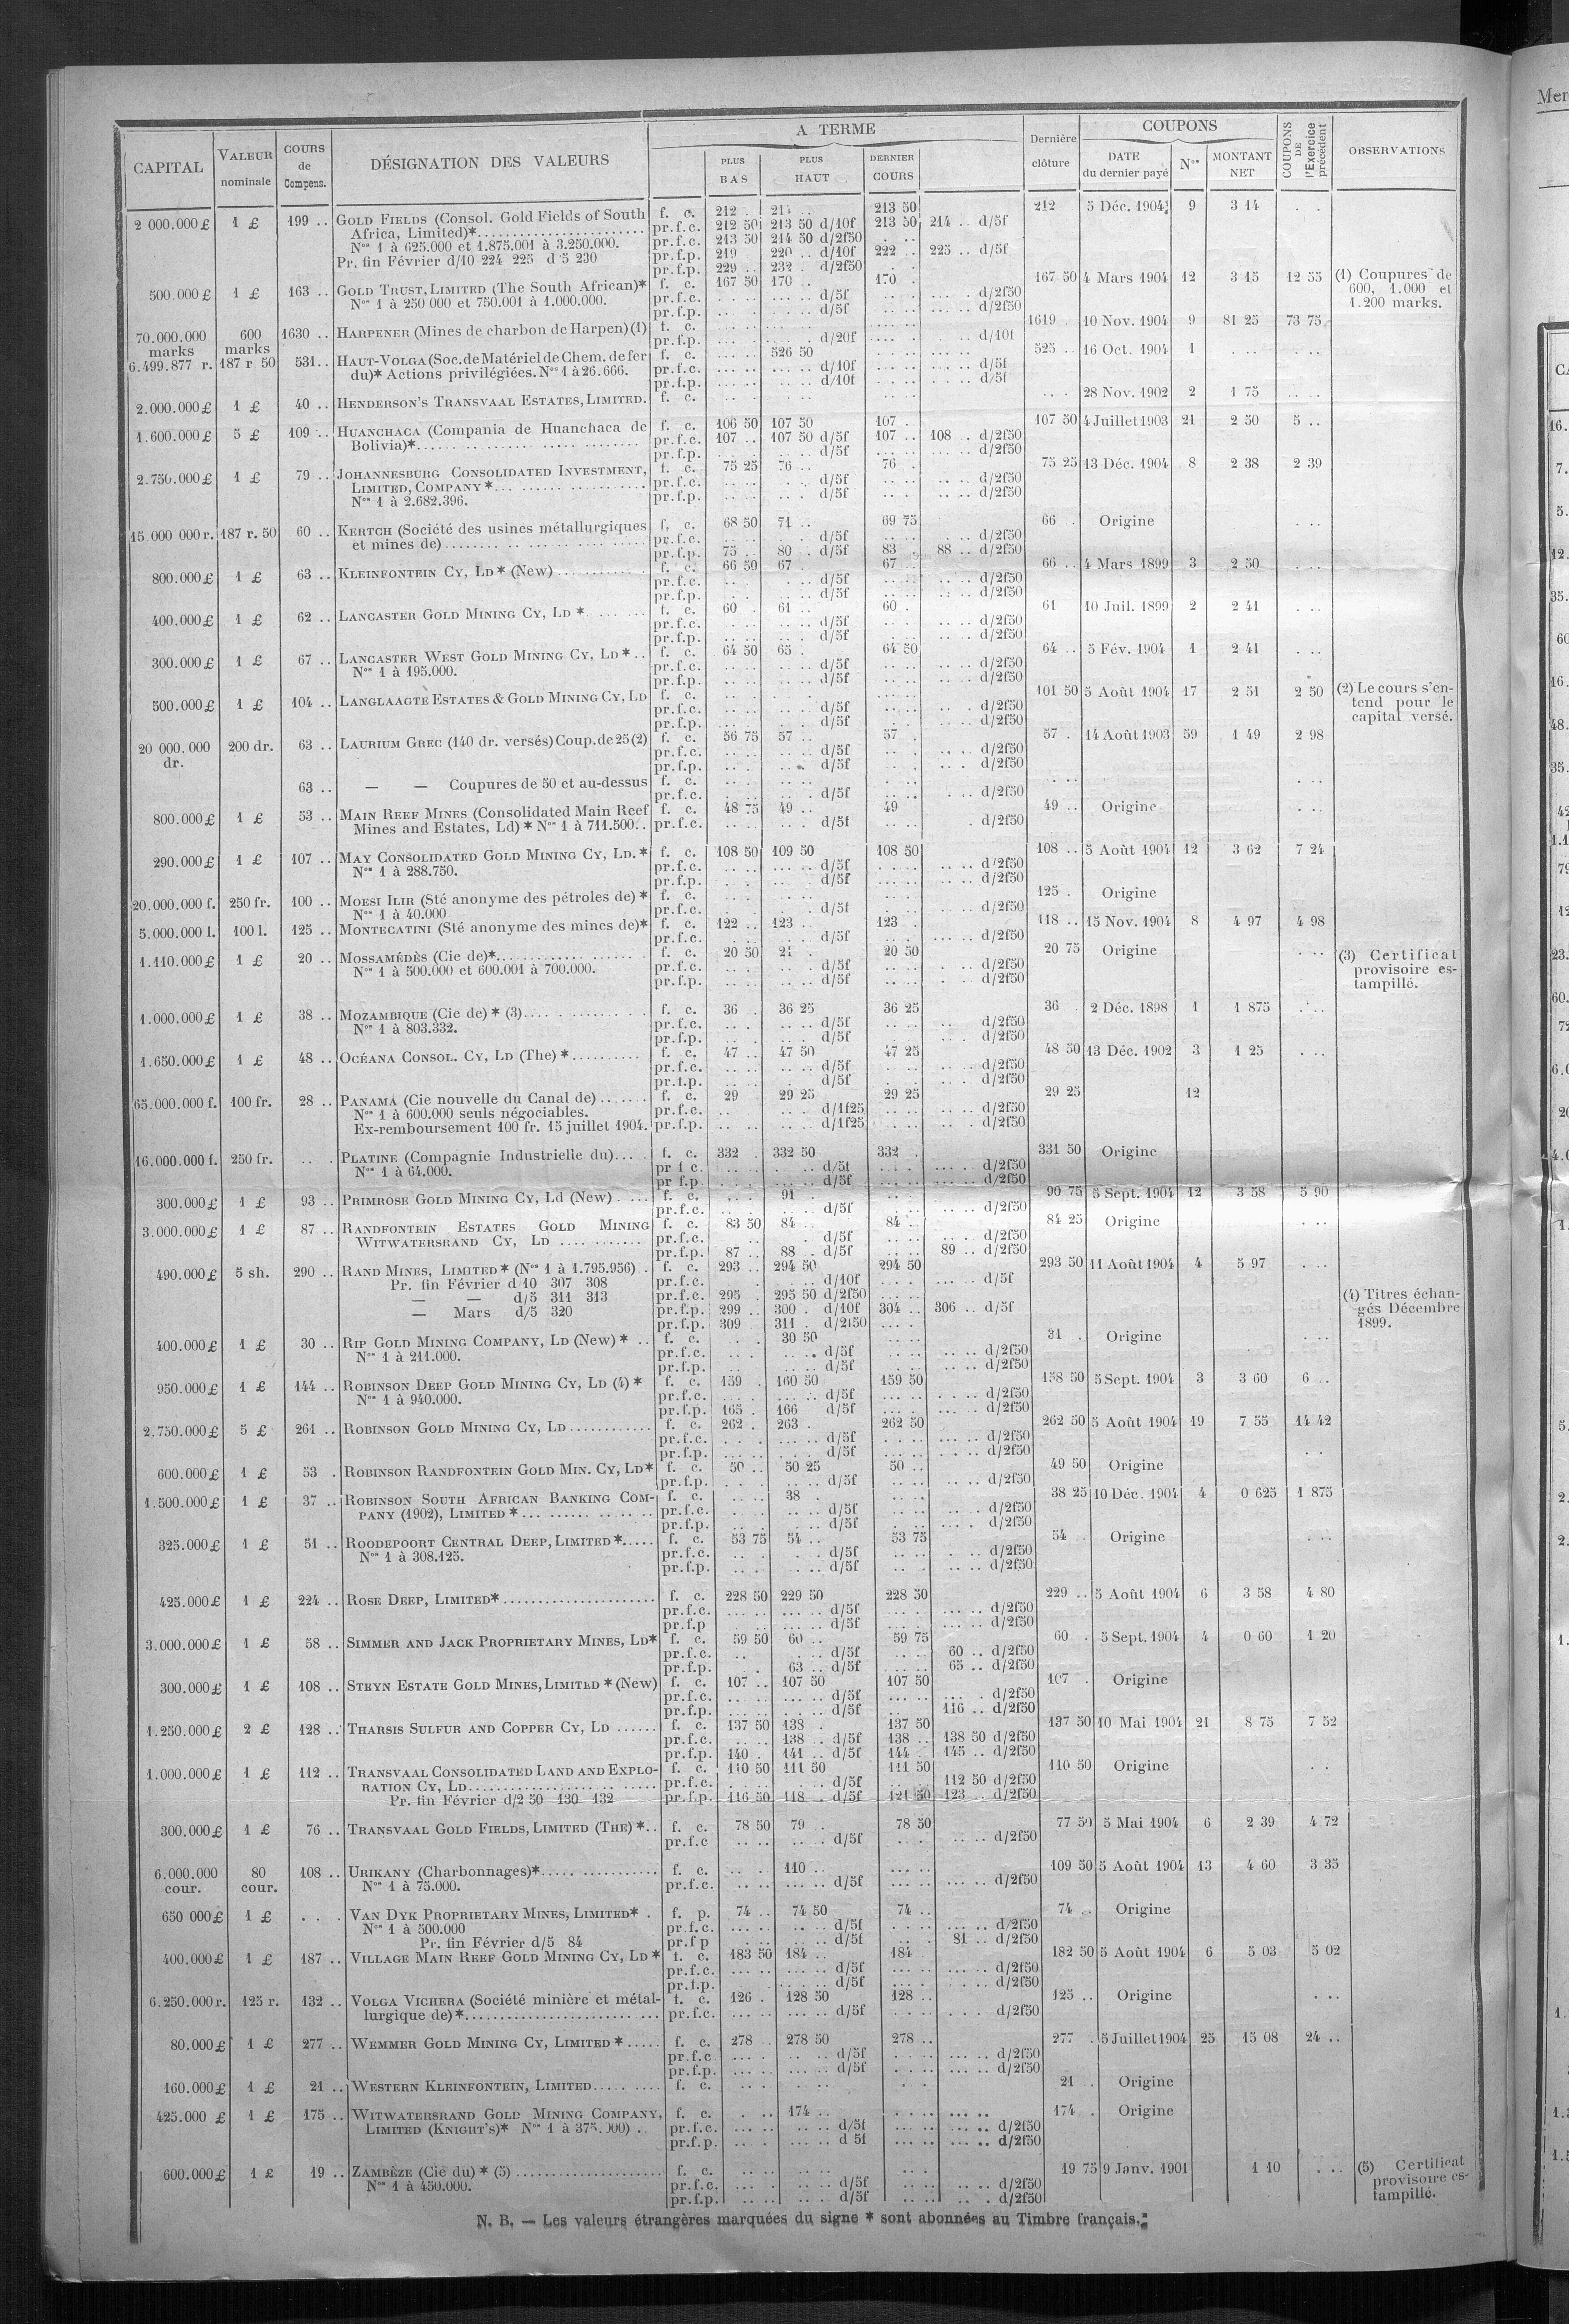 CAPITAL | VALEUR nominale | COURS de Compens. | DÉSIGNATION DES VALEURS | A TERME | PLUS BAS | PLUS HAUT | DERNIER COURS | Dernière clôture | COUPONS | DATE du dernier payé | Nos | MONTANT NET | COUPONS DE l'Exercice précédent | OBSERVATIONS
2 000.000 £ 1 £ 199 .. GOLD FIELDS (Consol. Gold Fields of South f. c. 212 . 213 50 212 5 Déc. 1904 9 3 14
Africa, Limited)* pr.f.c. 212 50 213 50 d/10f 213 50 214 .. d/5f
Nos 1 à 625.000 et 1.875.001 à 3.250.000. pr.f.c. 213 50 214 50 d/2f50
Pr. fin Février d/10 224 225 d/5 230 pr.f.p. 219 220 .. d/10f 222 .. 225 .. d/5f
pr.f.p. 229 .. 232 . d/2f50
500.000 £ 1 £ 163 .. GOLD TRUST, LIMITED (The South African)* f. c. 167 50 170 . 170 . 167 50 4 Mars 1904 12 3 15 12 55 (1) Coupures de
Nos 1 à 250 000 et 750.001 à 1.000.000. pr.f.c. d/5f d/2f50 600, 1.000 et
pr.f.p. d/5f d/2f50 1.200 marks.
70.000.000 marks 600 marks 1630 .. HARPENER (Mines de charbon de Harpen) (1) f. c. 1619 . 10 Nov. 1904 9 81 25 73 75
pr.f.p. d/20f d/10f
6.499.877 r. 187 r 50 531 .. HAUT-VOLGA (Soc. de Matériel de Chem. de fer f. c. 526 50 525 .. 16 Oct. 1904 1
du)* Actions privilégiées. Nos 1 à 26.666. pr.f.c. d/10f d/5f
pr.f.p. d/10f d/5f
2.000.000 £ 1 £ 40 .. HENDERSON'S TRANSVAAL ESTATES, LIMITED. f. c. 28 Nov. 1902 2 1 75
1.600.000 £ 5 £ 109 .. HUANCHACA (Compania de Huanchaca de f. c. 106 50 107 50 107 . 107 50 4 Juillet 1903 21 2 50 5 ..
Bolivia)* pr.f.c. 107 .. 107 50 d/5f 107 .. 108 . d/2f50
pr.f.p. d/5f d/2f50
2.750.000 £ 1 £ 79 .. JOHANNESBURG CONSOLIDATED INVESTMENT, f. c. 75 25 76 .. 76 . 75 25 13 Déc. 1904 8 2 38 2 39
LIMITED, COMPANY * pr.f.c. d/5f d/2f50
Nos 1 à 2.682.396. pr.f.p. d/5f d/2f50
15.000 000 r. 187 r. 50 60 .. KERTCH (Société des usines métallurgiques f. c. 68 50 71 .. 69 75 66 . Origine
et mines de) pr.f.c. d/5f d/2f50
pr.f.p. 75 .. 80 . d/5f 83 . 88 .. d/2f50
800.000 £ 1 £ 63 .. KLEINFONTEIN CY, LD * (New) f. c. 66 50 67 . 67 .. 66 .. 4 Mars 1899 3 2 50
pr.f.c. d/5f d/2f50
pr.f.p. d/5f d/2f50
400.000 £ 1 £ 62 .. LANCASTER GOLD MINING CY, LD * f. c. 60 . 61 .. 60 . 61 10 Juil. 1899 2 2 41
pr.f.c. d/5f d/2f50
pr.f.p. d/5f d/2f50
300.000 £ 1 £ 67 .. LANCASTER WEST GOLD MINING CY, LD * f. c. 64 50 65 . 64 50 64 .. 5 Fév. 1904 1 2 41
Nos 1 à 195.000. pr.f.c. d/5f d/2f50
pr.f.p. d/5f d/2f50
500.000 £ 1 £ 104 .. LANGLAAGTE ESTATES & GOLD MINING CY, LD f. c. 101 50 5 Août 1904 17 2 51 2 50 (2) Le cours s'en-
pr.f.c. d/5f d/2f50 tend pour le
pr.f.p. d/5f d/2f50 capital versé.
20 000.000 dr. 200 dr. 63 .. LAURIUM GREC (140 dr. versés) Coup. de 25 (2) f. c. 56 75 57 .. 57 . 57 . 14 Août 1903 59 1 49 2 98
pr.f.c. d/5f d/2f50
pr.f.p. d/5f d/2f50
63 .. — — Coupures de 50 et au-dessus f. c.
pr.f.c. d/5f d/2f50
800.000 £ 1 £ 53 .. MAIN REEF MINES (Consolidated Main Reef f. c. 48 75 49 .. 49 49 .. Origine
Mines and Estates, Ld) * Nos 1 à 711.500.. pr.f.c. d/5f d/2f50
290.000 £ 1 £ 107 .. MAY CONSOLIDATED GOLD MINING CY, LD. * f. c. 108 50 109 50 108 50 108 .. 5 Août 1904 12 3 62 7 24
Nos 1 à 288.750. pr.f.c. d/5f d/2f50
pr.f.p. d/5f d/2f50
20.000.000 f. 250 fr. 100 .. MOESI ILIR (Sté anonyme des pétroles de) * f. c. 125 . Origine
Nos 1 à 40.000 pr.f.c. d/5f d/2f50
5.000.000 l. 100 l. 125 .. MONTECATINI (Sté anonyme des mines de)* f. c. 122 .. 123 .. 123 . 118 .. 15 Nov. 1904 8 4 97 4 98
pr.f.c. d/5f d/2f50
1.110.000 £ 1 £ 20 .. MOSSAMÉDÈS (Cie de)* f. c. 20 50 21 . 20 50 20 75 Origine (3) Certificat
Nos 1 à 500.000 et 600.001 à 700.000. pr.f.c. d/5f d/2f50 provisoire es-
pr.f.p. d/5f d/2f50 tampillé.
1.000.000 £ 1 £ 38 .. MOZAMBIQUE (Cie de) * (3) f. c. 36 .. 36 25 36 25 36 . 2 Déc. 1898 1 1 875
Nos 1 à 803.332. pr.f.c. d/5f d/2f50
pr.f.p. d/5f d/2f50
1.650.000 £ 1 £ 48 .. OCÉANA CONSOL. CY, LD (The) * f. c. 47 .. 47 50 47 25 48 50 13 Déc. 1902 3 1 25
pr.f.c. d/5f d/2f50
pr.f.p. d/5f d/2f50
65.000.000 f. 100 fr. 28 .. PANAMA (Cie nouvelle du Canal de) f. c. 29 29 25 29 25 29 25 12
Nos 1 à 600.000 seuls négociables. pr.f.c. d/1f25 d/2f50
Ex-remboursement 100 fr. 15 juillet 1904. pr.f.p. d/1f25 d/2f50
16.000.000 f. 250 fr. PLATINE (Compagnie Industrielle du) f. c. 332 . 332 50 332 . 331 50 Origine
Nos 1 à 64.000. pr f c. d/5f d/2f50
pr f.p d/5f d/2f50
300.000 £ 1 £ 93 .. PRIMROSE GOLD MINING CY, Ld (New) f. c. 91 . 90 75 5 Sept. 1904 12 3 58 5 90
pr.f.c. d/5f d/2f50
3.000.000 £ 1 £ 87 .. RANDFONTEIN ESTATES GOLD MINING f. c. 83 50 84 .. 84 .. 84 25 Origine
WITWATERSRAND CY, LD pr.f.c. d/5f d/2f50
pr.f.p. 87 .. 88 . d/5f 89 .. d/2f50
490.000 £ 5 sh. 290 .. RAND MINES, LIMITED * (Nos 1 à 1.795.956) f. c. 293 .. 294 50 294 50 293 50 11 Août 1904 4 5 97
Pr. fin Février d/10 307 308 pr.f.c. d/10f d/5f
— — d/5 311 313 pr.f.c. 295 . 295 50 d/2f50 (4) Titres échan-
— Mars d/5 320 pr.f.p. 299 .. 300 . d/10f 304 .. 306 .. d/5f gés Décembre
pr.f.p. 309 311 . d/2f50 1899.
400.000 £ 1 £ 30 .. RIP GOLD MINING COMPANY, LD (New) * f. c. 30 50 31 . Origine
Nos 1 à 211.000. pr.f.c. d/5f d/2f50
pr.f.p. d/5f d/2f50
950.000 £ 1 £ 144 .. ROBINSON DEEP GOLD MINING CY, LD (4) * f. c. 159 . 160 50 159 50 158 50 5 Sept. 1904 3 3 60 6 ..
Nos 1 à 940.000. pr.f.c. d/5f d/2f50
pr.f.p. 165 . 166 d/5f d/2f50
2.750.000 £ 5 £ 261 .. ROBINSON GOLD MINING CY, LD f. c. 262 . 263 . 262 50 262 50 5 Août 1904 19 7 55 14 42
pr.f.c. d/5f d/2f50
pr.f.p. d/5f d/2f50
600.000 £ 1 £ 53 . ROBINSON RANDFONTEIN GOLD MIN. CY, LD* f. c. 50 .. 50 25 50 .. 49 50 Origine
pr.f.p. d/5f d/2f50
1.500.000 £ 1 £ 37 .. ROBINSON SOUTH AFRICAN BANKING COM- f. c. 38 . 38 25 10 Déc. 1904 4 0 625 1 875
PANY (1902), LIMITED * pr.f.c. d/5f d/2f50
pr.f.p. d/5f d/2f50
325.000 £ 1 £ 51 .. ROODEPOORT CENTRAL DEEP, LIMITED * f. c. 53 75 54 .. 53 75 54 .. Origine
Nos 1 à 308.125. pr.f.c. d/5f d/2f50
pr.f.p. d/5f d/2f50
425.000 £ 1 £ 224 .. ROSE DEEP, LIMITED* f. c. 228 50 229 50 228 50 229 .. 5 Août 1904 6 3 58 4 80
pr.f.c. d/5f d/2f50
pr.f.p d/5f d/2f50
3.000.000 £ 1 £ 58 .. SIMMER AND JACK PROPRIETARY MINES, LD* f. c. 59 50 60 .. 59 75 60 . 5 Sept. 1904 4 0 60 1 20
pr.f.c. d/5f 60 .. d/2f50
pr.f.p. 63 .. d/5f 65 .. d/2f50
300.000 £ 1 £ 108 .. STEYN ESTATE GOLD MINES, LIMITED * (New) f. c. 107 .. 107 50 107 50 107 . Origine
pr.f.c. d/5f d/2f50
pr.f.p. d/5f 116 .. d/2f50
1.250.000 £ 2 £ 128 .. THARSIS SULFUR AND COPPER CY, LD f. c. 137 50 138 . 137 50 137 50 10 Mai 1904 21 8 75 7 52
pr.f.c. 138 .. d/5f 138 .. 138 50 d/2f50
pr.f.p. 140 . 141 .. d/5f 144 . 145 .. d/2f50
1.000.000 £ 1 £ 112 .. TRANSVAAL CONSOLIDATED LAND AND EXPLO- f. c. 110 50 111 50 111 50 110 50 Origine
RATION CY, LD pr.f.c. d/5f 112 50 d/2f50
Pr. fin Février d/2 50 130 132 pr.f.p. 116 50 118 . d/5f 121 50 123 .. d/2f50
300.000 £ 1 £ 76 .. TRANSVAAL GOLD FIELDS, LIMITED (THE) * f. c. 78 50 79 . 78 50 77 50 5 Mai 1904 6 2 39 4 72
pr.f.c d/5f d/2f50
6.000.000 cour. 80 cour. 108 .. URIKANY (Charbonnages)* f. c. 110 .. 109 50 5 Août 1904 13 4 60 3 35
Nos 1 à 75.000. pr.f.c. d/5f d/2f50
650 000 £ 1 £ VAN DYK PROPRIETARY MINES, LIMITED* f. p. 74 .. 74 50 74 .. 74 .. Origine
Nos 1 à 500.000 pr.f.c. d/5f d/2f50
Pr. fin Février d/5 84 pr.f p d/5f 81 .. d/2f50
400.000 £ 1 £ 187 .. VILLAGE MAIN REEF GOLD MINING CY, LD * f. c. 183 50 184 .. 184 182 50 5 Août 1904 6 5 03 5 02
pr.f.c. d/5f d/2f50
pr.f.p. d/5f d/2f50
6.250.000 r. 125 r. 132 .. VOLGA VICHERA (Société minière et métal- f. c. 126 . 128 50 128 .. 125 .. Origine
lurgique de) * pr.f.c. d/5f d/2f50
80.000 £ 1 £ 277 .. WEMMER GOLD MINING CY, LIMITED * f. c. 278 .. 278 50 278 .. 277 . 5 Juillet 1904 25 15 08 24 ..
pr.f.c d/5f d/2f50
pr.f.p. d/5f d/2f50
160.000 £ 1 £ 21 .. WESTERN KLEINFONTEIN, LIMITED f. c. 21 .. Origine
425.000 £ 1 £ 175 .. WITWATERSRAND GOLD MINING COMPANY, f. c. 174 .. 174 . Origine
LIMITED (KNIGHT'S)* Nos 1 à 375.000) pr.f.c. d/5f d/2f50
pr.f.p. d 5f d/2f50
600.000 £ 1 £ 19 .. ZAMBÈZE (Cie du) * (5) f. c. 19 75 9 Janv. 1901 1 10 (5) Certificat
Nos 1 à 450.000. pr.f.c. d/5f d/2f50 provisoire es-
pr.f.p. d/5f d/2f50 tampillé.
N. B. — Les valeurs étrangères marquées du signe * sont abonnées au Timbre français.